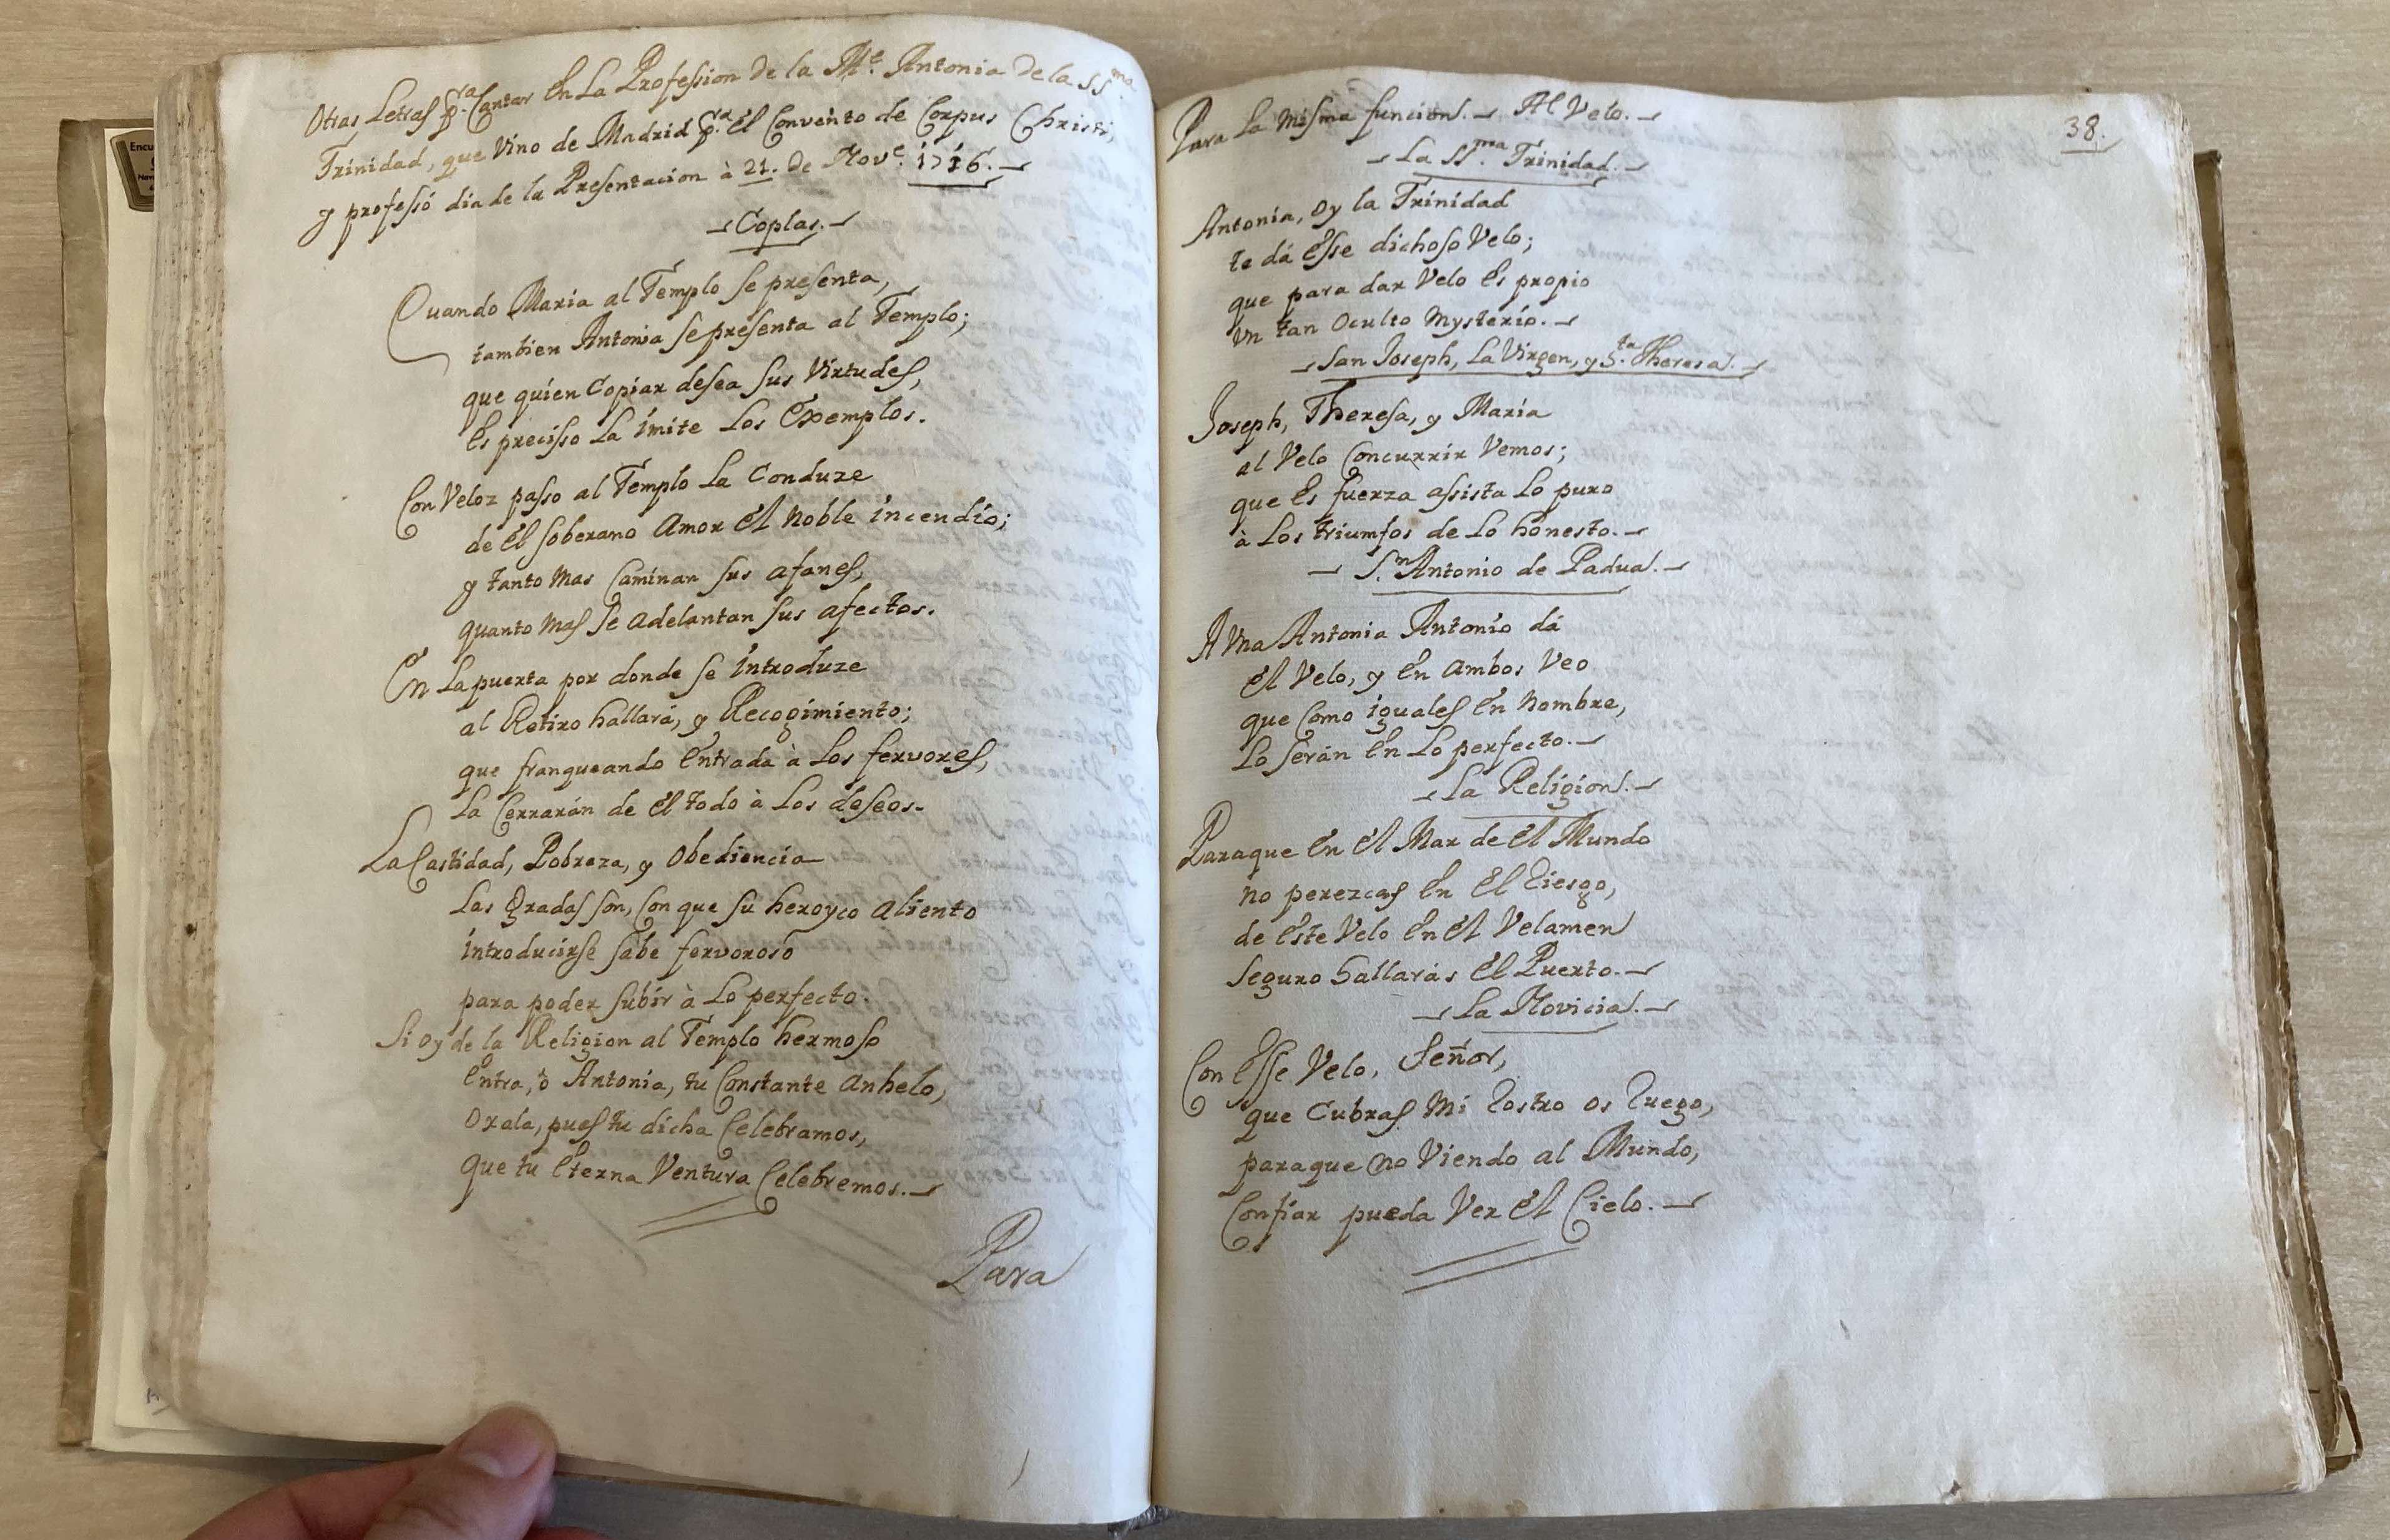 Otras Letras p.ra Cantar en La Profession de la M.e Antonia de la SS.ma
Trinidad, que Vino de Madrid p.ra el Convento de Corpus Christi,
y professó dia de la Presentacion à 21. de Nov.e 1716.
Coplas.
Quando Maria al Templo se presenta,
tambien Antonia se presenta al Templo;
que quien Copiar desea sus Virtudes,
es precisso La imite Los Exemplos.
Con Veloz passo al Templo La Conduze
de el soberano Amor el noble incendio;
y tanto mas Caminan sus afanes,
quanto mas se adelantan sus afectos.
En La puerta por donde se introduze
al Retiro hallará, y Recogimiento;
que franqueando entrada à Los fervores,
La Cerrarán de el todo à Los deseos.
La Castidad, Pobreza, y Obediencia
Las gradas son, Con que su heroyco aliento
introducirse sabe fervoroso
para poder subir à Lo perfecto.
Si oy de la Religion al Templo hermoso
entra, ò Antonia, tu Constante anhelo,
oxala, pues tu dicha Celebramos,
que tu eterna Ventura Celebremos.
Para
38.
Para La misma funcion. Al Velo.
La SS.ma Trinidad.
Antonia, oy la Trinidad
te dá esse dichoso Velo;
que para dar Velo es propio
un tan Oculto mysterio.
San Joseph, La Virgen, y S.ta Theresa.
Joseph, Theresa, y Maria
al Velo Concurrir Vemos;
que es fuerza assista Lo puro
à Los triumfos de Lo honesto.
S.n Antonio de Padua.
A Una Antonia Antonio dá
el Velo, y en ambos Veo
que Como iguales en nombre,
Lo serán en Lo perfecto.
La Religion.
Paraque en el Mar de el Mundo
no perezcas en el riesgo,
de este Velo en el Velamen
seguro hallarás el Puerto.
La Novicia.
Con esse Velo, Señor,
que Cubras mi rostro os ruego,
paraque no Viendo al Mundo,
Confiar pueda Ver el Cielo.